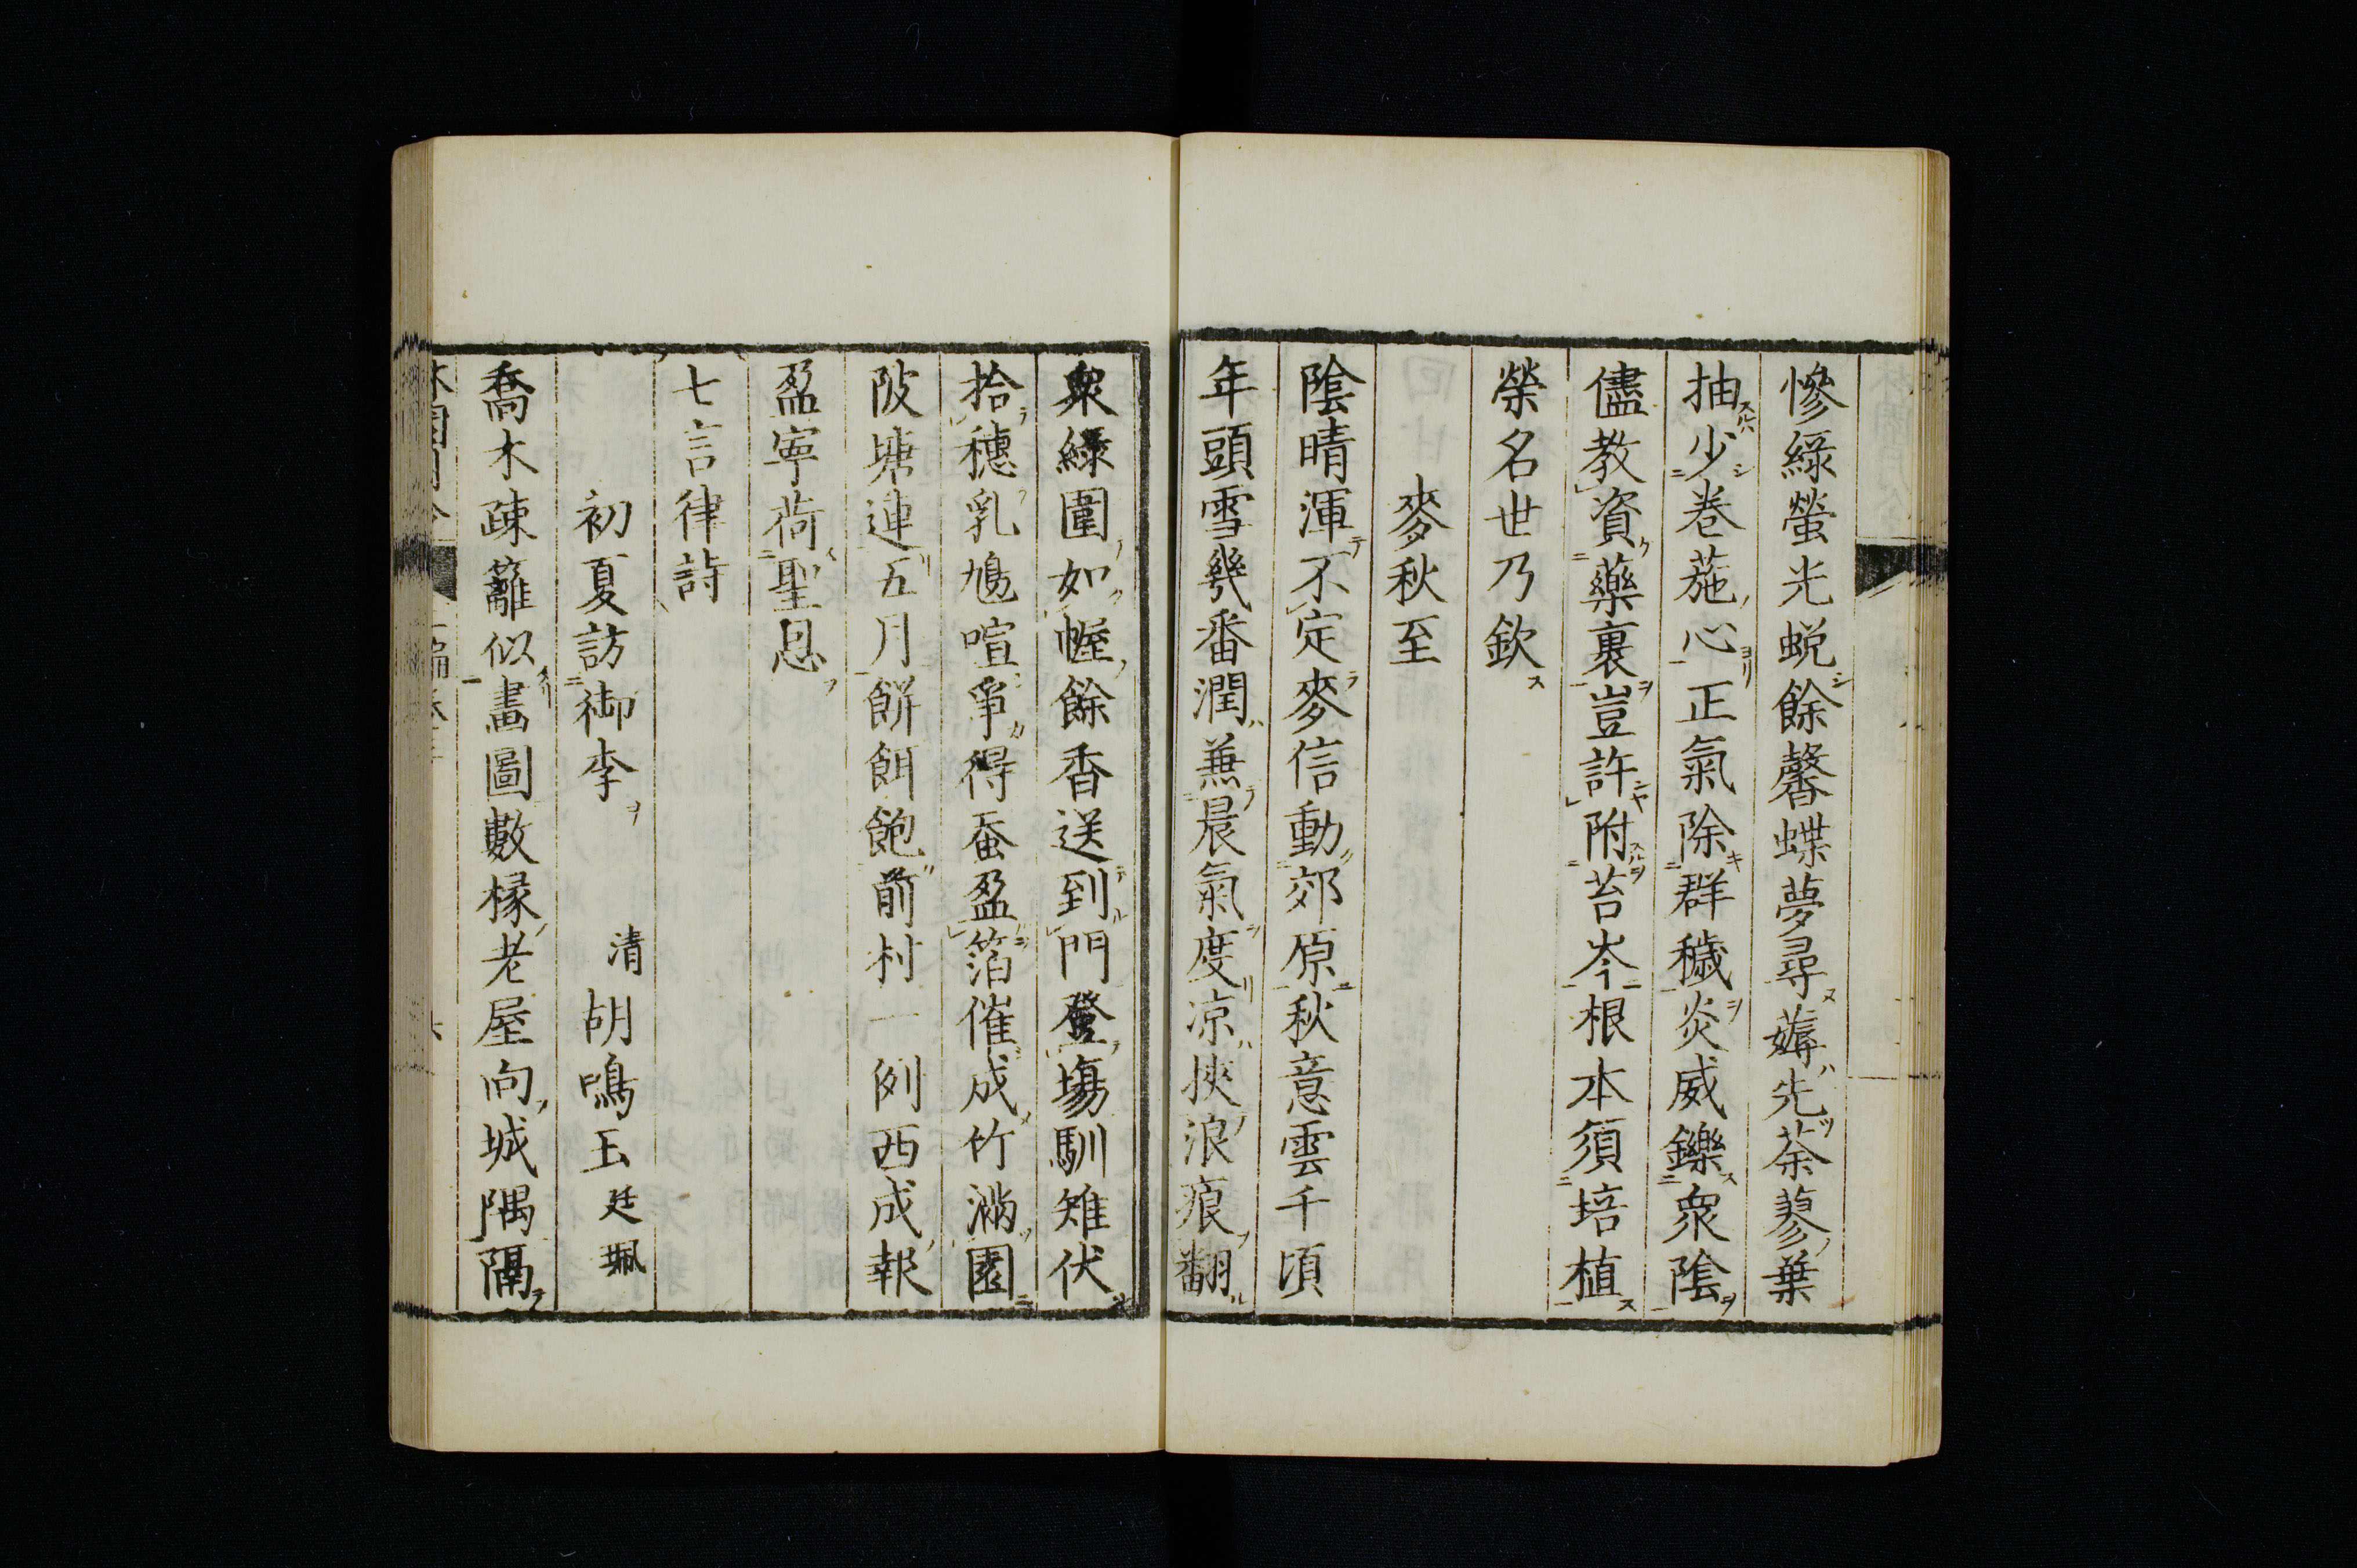 慘綠螢光蛻餘馨蝶夢尋薅先荼蓼葉
抽少卷葹心正氣除群穢炎威鑠衆陰
儘教資藥裹豈許附苔岑根本須培植
榮名世乃欽
麥秋至
陰晴渾不定麥信動郊原秋意雲千頃
年頭雪幾番潤兼晨氣度涼挾浪痕翻
衆綠圍如幄餘香送到門登場馴雉伏
拾穗乳鳩喧爭得蚕盈箔催成竹滿園
陂塘連五月餅餌飽前村一例西成報
盈寧荷聖恩
七言律詩
初夏訪御李 清 胡鳴玉 廷珮
喬木疎籬似畫圖數椽老屋向城隅隔